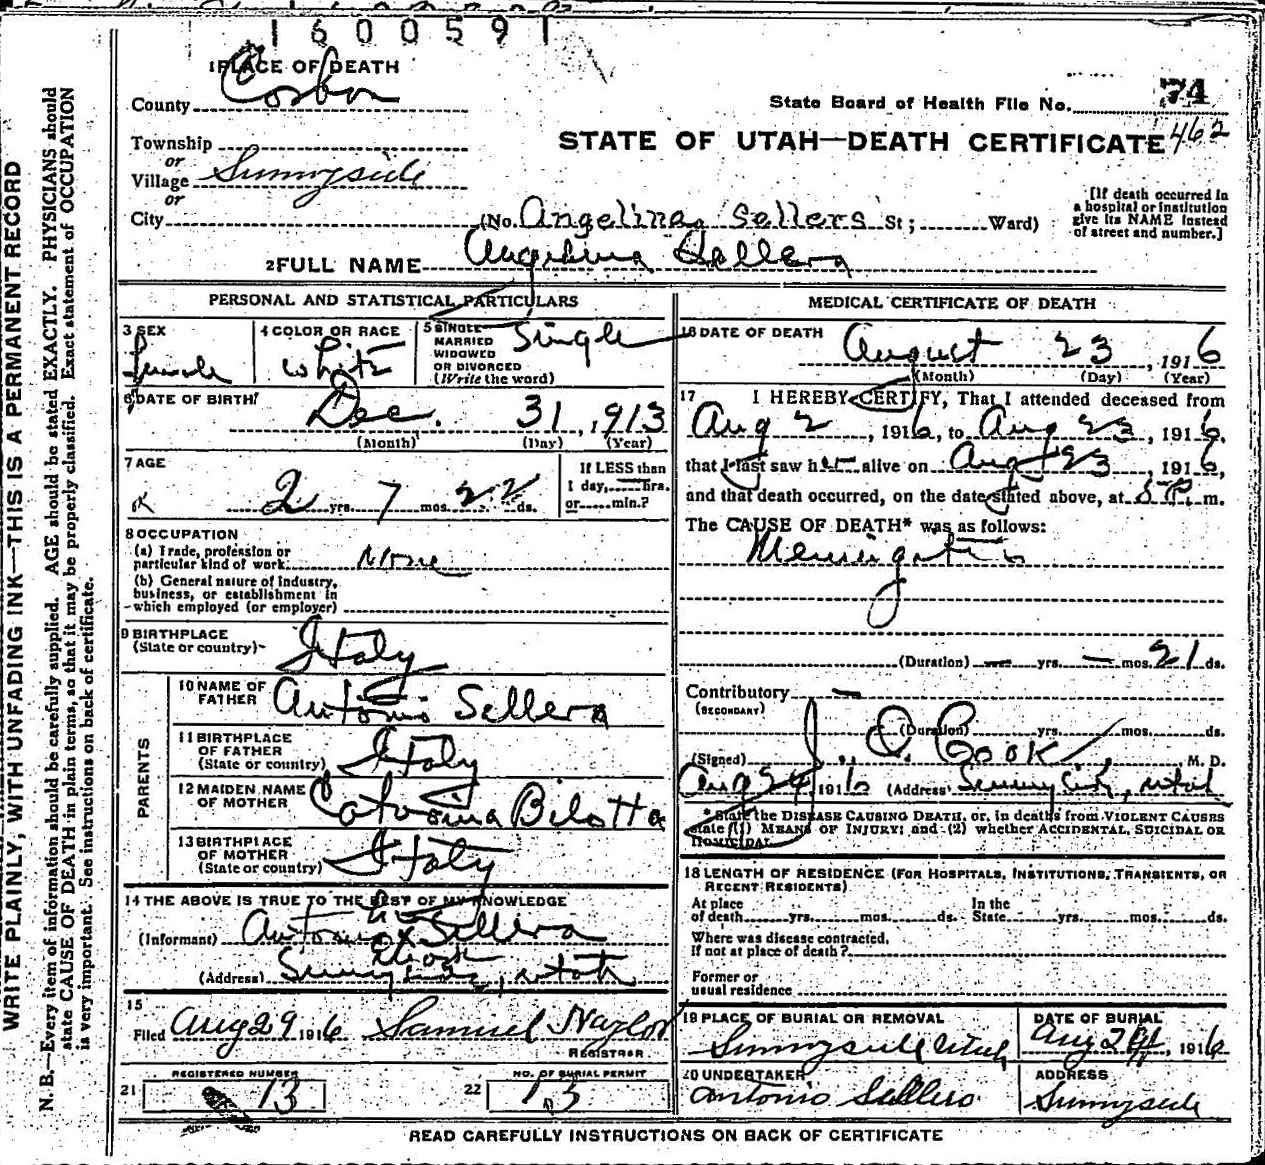 1600591
1 PLACE OF DEATH
County Carbon
State Board of Health File No. 74
STATE OF UTAH—DEATH CERTIFICATE 462
Township
or
Village Sunnyside
or
City (No. Angelina Sellers St; Ward)
[If death occurred in a hospital or institution give its NAME instead of street and number.]
2 FULL NAME Angelina Sellera
PERSONAL AND STATISTICAL PARTICULARS
3 SEX female
4 COLOR OR RACE white
5 SINGLE MARRIED WIDOWED OR DIVORCED (Write the word) Single
6 DATE OF BIRTH Dec. 31, 1913
(Month) (Day) (Year)
7 AGE 2 yrs. 7 mos. 22 ds.
If LESS than 1 day, hrs. or min.?
8 OCCUPATION
(a) Trade, profession or particular kind of work None
(b) General nature of industry, business, or establishment in which employed (or employer)
9 BIRTHPLACE (State or country) Italy
PARENTS
10 NAME OF FATHER Antonio Sellera
11 BIRTHPLACE OF FATHER (State or country) Italy
12 MAIDEN NAME OF MOTHER Catorina Bilotta
13 BIRTHPLACE OF MOTHER (State or country) Italy
14 THE ABOVE IS TRUE TO THE BEST OF MY KNOWLEDGE
(Informant) Antonio his x mark Sellera
(Address) Sunnyside, Utah
15 Filed Aug 29 1916 Samuel Naylor
REGISTRAR
21 REGISTERED NUMBER 13
22 NO. OF BURIAL PERMIT 13
MEDICAL CERTIFICATE OF DEATH
16 DATE OF DEATH August 23, 1916
(Month) (Day) (Year)
17 I HEREBY CERTIFY, That I attended deceased from
Aug 2, 1916, to Aug 23, 1916,
that I last saw her alive on Aug 23, 1916,
and that death occurred, on the date stated above, at 5 P. m.
The CAUSE OF DEATH* was as follows:
Meningitis
(Duration) — yrs. — mos. 21 ds.
Contributory —
(SECONDARY)
(Duration) yrs. mos. ds.
(Signed) J. D. Cook, M. D.
Aug 24, 1916 (Address) Sunnyside, Utah
* State the DISEASE CAUSING DEATH, or, in deaths from VIOLENT CAUSES state (1) MEANS OF INJURY; and (2) whether ACCIDENTAL, SUICIDAL OR HOMICIDAL
18 LENGTH OF RESIDENCE (FOR HOSPITALS, INSTITUTIONS, TRANSIENTS, OR RECENT RESIDENTS)
At place of death yrs. mos. ds. In the State yrs. mos. ds.
Where was disease contracted, if not at place of death?
Former or usual residence
19 PLACE OF BURIAL OR REMOVAL Sunnyside Utah
DATE OF BURIAL Aug 24, 1916
20 UNDERTAKER Antonio Sellero.
ADDRESS Sunnyside
READ CAREFULLY INSTRUCTIONS ON BACK OF CERTIFICATE
WRITE PLAINLY, WITH UNFADING INK—THIS IS A PERMANENT RECORD
N. B.—Every item of information should be carefully supplied. AGE should be stated EXACTLY. PHYSICIANS should
state CAUSE OF DEATH in plain terms, so that it may be properly classified. Exact statement of OCCUPATION
is very important. See instructions on back of certificate.